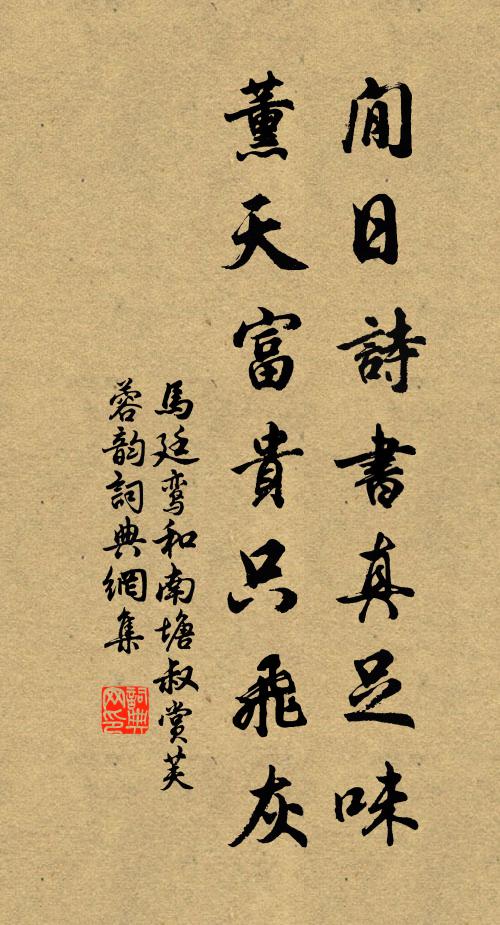 閒日詩書真足味
薰天富貴只飛灰
馬廷鸞和南塘叔賞芙
蓉韵詞典網集
詞典网印